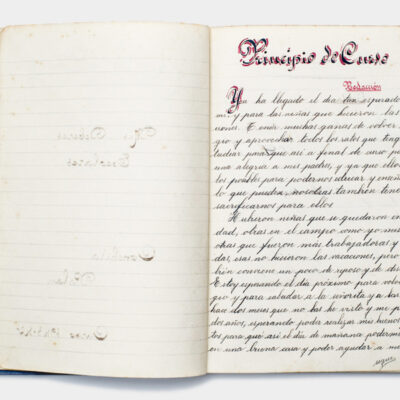 Principio de Curso
Redacción
Ya ha llegado el día tan esperado
mí, y para las niñas que hicieron las
ciones. Tenía muchas ganas de volver
gio y aprovechar todos los ratos que teng
tudiar para que así a final de curso
una alegría a mis padres, ya que ello
tos posible para podernos educar y enseña
lo que puedan, nosotras también tene
sacrificarnos para ellos
Hubieron niñas que se quedaron en
dad, otras en el campo como yo mu
otras que fueron más trabajadoras y
das, esas no hicieron las vacaciones, pero
bién conviene un poco de reposo y de dis
Estoy esperando el día próximo para volv
gio y para saludar a la señorita y a
hace dos meses que no las he visto y me p
dos años, esperando poder realizar mis bueno
tos para que así el día de mañana
en una buena casa y poder ayudar a m